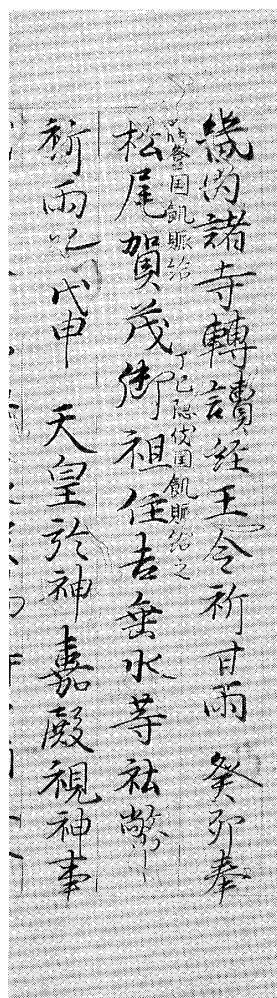 畿内諸寺轉讀経王令祈甘雨 癸卯奉
登国飢賑給 丁巳隠伎国飢賑給之
松尾賀茂御祖住吉垂水等社幣
祈雨也 戊申 天皇於神嘉殿視神事